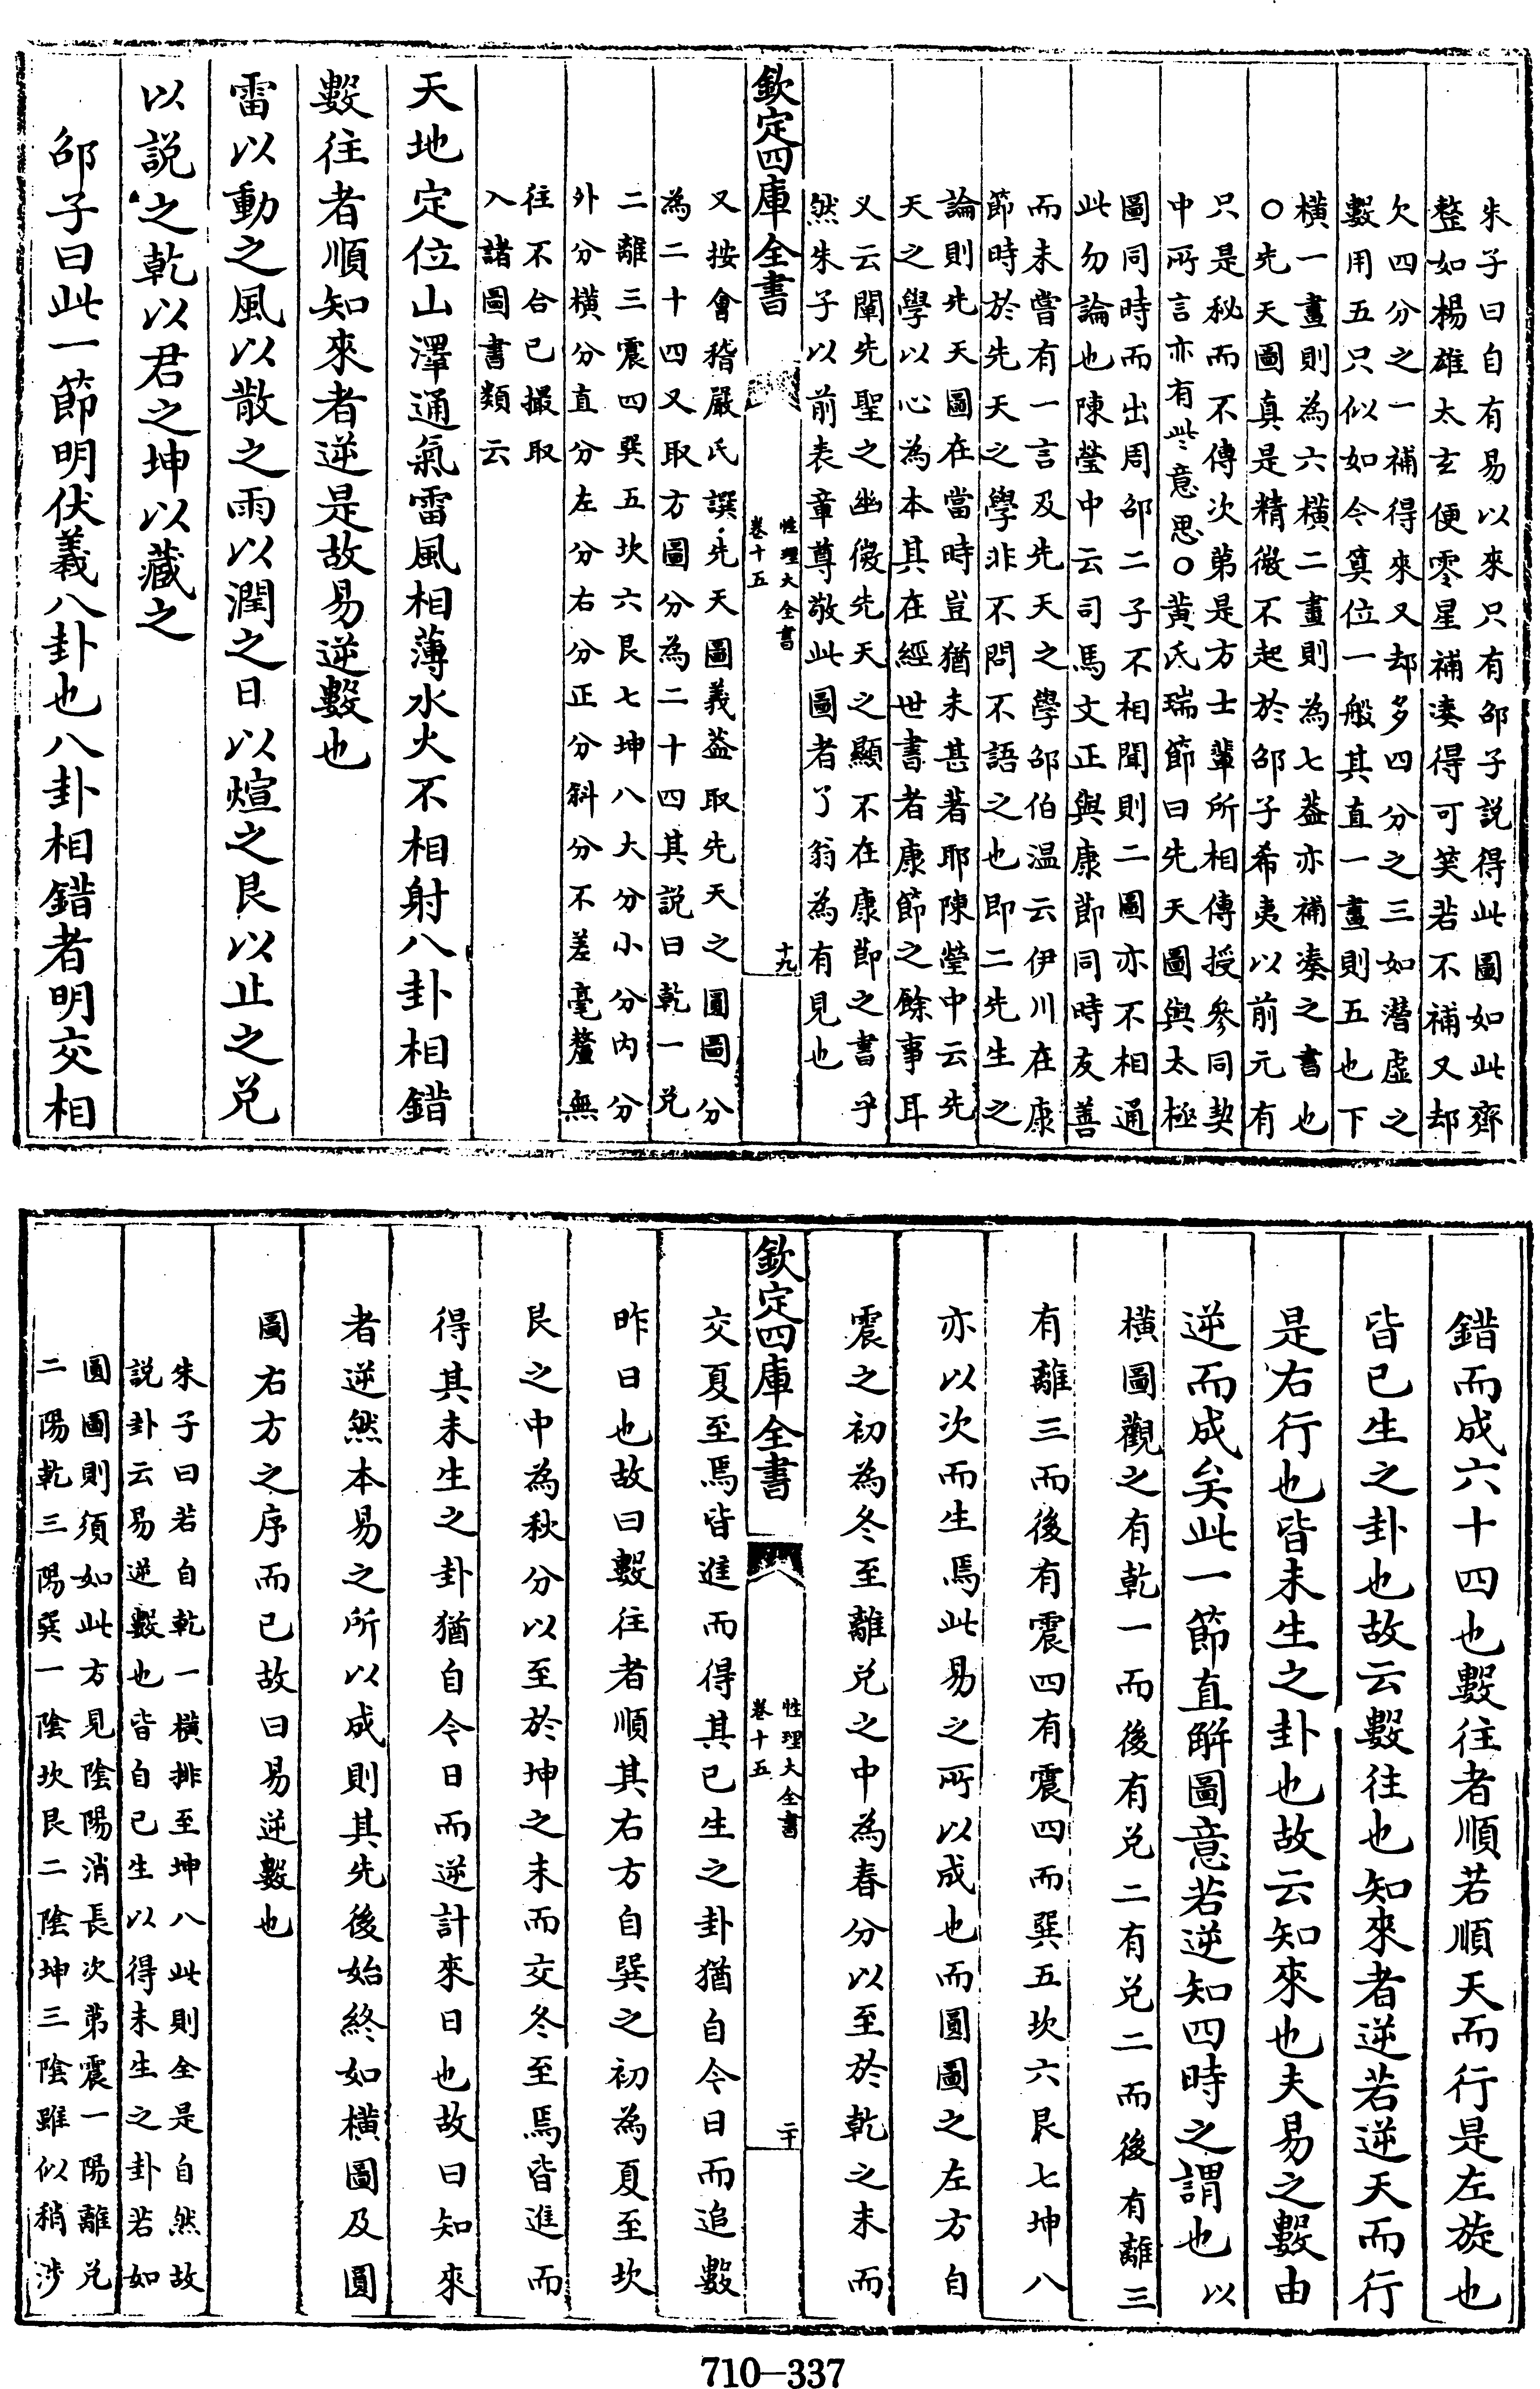 朱子曰自有易以來只有邵子説得此圖如此齊
整如楊雄太玄便零星補湊得可笑若不補又却
欠四分之一補得來又却多四分之三如潛虛之
數用五只似如今算位一般其直一畫則五也下
橫一畫則為六橫二畫則為七葢亦補湊之書也
○先天圖真是精微不起於邵子希夷以前元有
只是秘而不傳次第是方士輩所相傳授參同契
中所言亦有些意思○黃氏瑞節曰先天圖與太極
圖同時而出周邵二子不相聞則二圖亦不相通
此勿論也陳瑩中云司馬文正與康節同時友善
而未嘗有一言及先天之學邵伯温云伊川在康
節時於先天之學非不問不語之也即二先生之
論則先天圖在當時豈猶未甚著耶陳瑩中云先
天之學以心為本其在經世書者康節之餘事耳
又云闡先聖之幽微先天之顯不在康節之書乎
然朱子以前表章尊敬此圖者了翁為有見也
欽定四庫全書
性理大全書
卷十五
十九
又按會稽嚴氏譔先天圖義葢取先天之圓圖分
為二十四又取方圖分為二十四其説曰乾一兌
二離三震四巽五坎六艮七坤八大分小分內分
外分橫分直分左分右分正分斜分不差毫釐無
往不合已撮取
入諸圖書類云
天地定位山澤通氣雷風相薄水火不相射八卦相錯
數往者順知來者逆是故易逆數也
雷以動之風以散之雨以潤之日以煊之艮以止之兌
以説之乾以君之坤以藏之
邵子曰此一節明伏羲八卦也八卦相錯者明交相
錯而成六十四也數往者順若順天而行是左旋也
皆已生之卦也故云數往也知來者逆若逆天而行
是右行也皆未生之卦也故云知來也夫易之數由
逆而成矣此一節直解圖意若逆知四時之謂也以
橫圖觀之有乾一而後有兌二有兌二而後有離三
有離三而後有震四有震四而巽五坎六艮七坤八
亦以次而生焉此易之所以成也而圓圖之左方自
震之初為冬至離兌之中為春分以至於乾之末而
欽定四庫全書
性理大全書
卷十五
二十
交夏至焉皆進而得其已生之卦猶自今日而追數
昨日也故曰數往者順其右方自巽之初為夏至坎
艮之中為秋分以至於坤之末而交冬至焉皆進而
得其未生之卦猶自今日而逆計來日也故曰知來
者逆然本易之所以成則其先後始終如橫圖及圓
圖右方之序而已故曰易逆數也
朱子曰若自乾一橫排至坤八此則全是自然故
説卦云易逆數也皆自已生以得未生之卦若如
圓圖則須如此方見陰陽消長次第震一陽離兌
二陽乾三陽巽一陰坎艮二陰坤三陰雖似稍涉
710—337